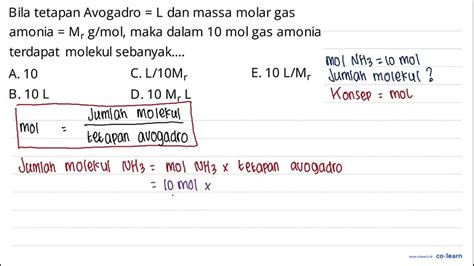 Bila tetapan Avogadro = L dan massa molar gas
amonia = Mr g/mol, maka dalam 10 mol gas amonia
terdapat molekul sebanyak....
A. 10 C. L/10Mr E. 10 L/Mr
B. 10 L D. 10 Mr L
mol NH3 = 10 mol
Jumlah molekul ?
Konsep = mol
mol = Jumlah molekul
tetapan avogadro
Jumlah molekul NH3 = mol NH3 x tetapan avogadro
= 10 mol x
co-learn